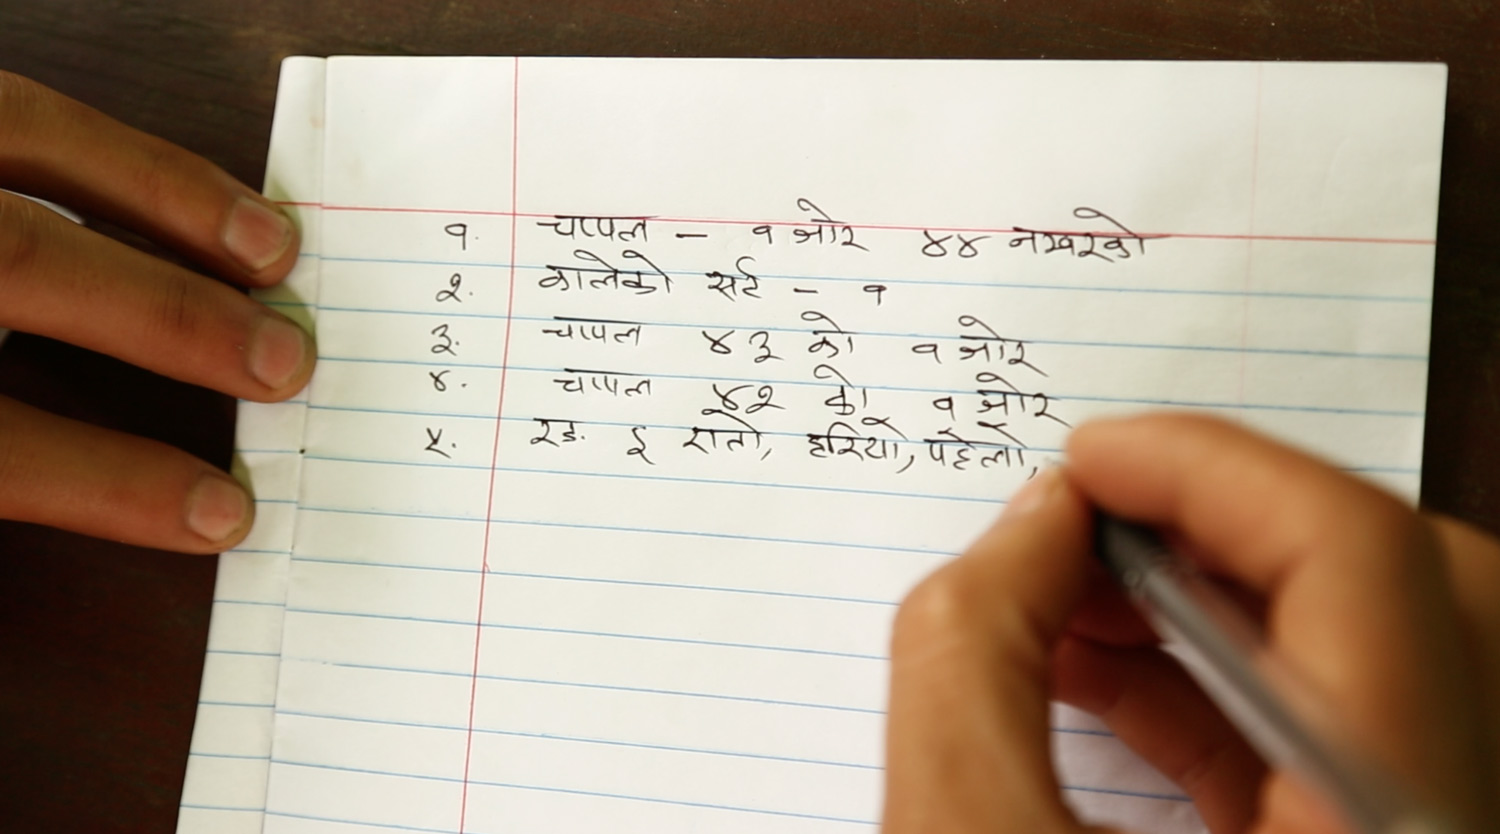 १. चप्पल - १ जोर ४४ नम्बरको
२. कालेको सर्ट - १
३. चप्पल ४३ को १ जोर
४. चप्पल ४२ को १ जोर
५. रङ. ६ रातो, हरियो, पहेलो,